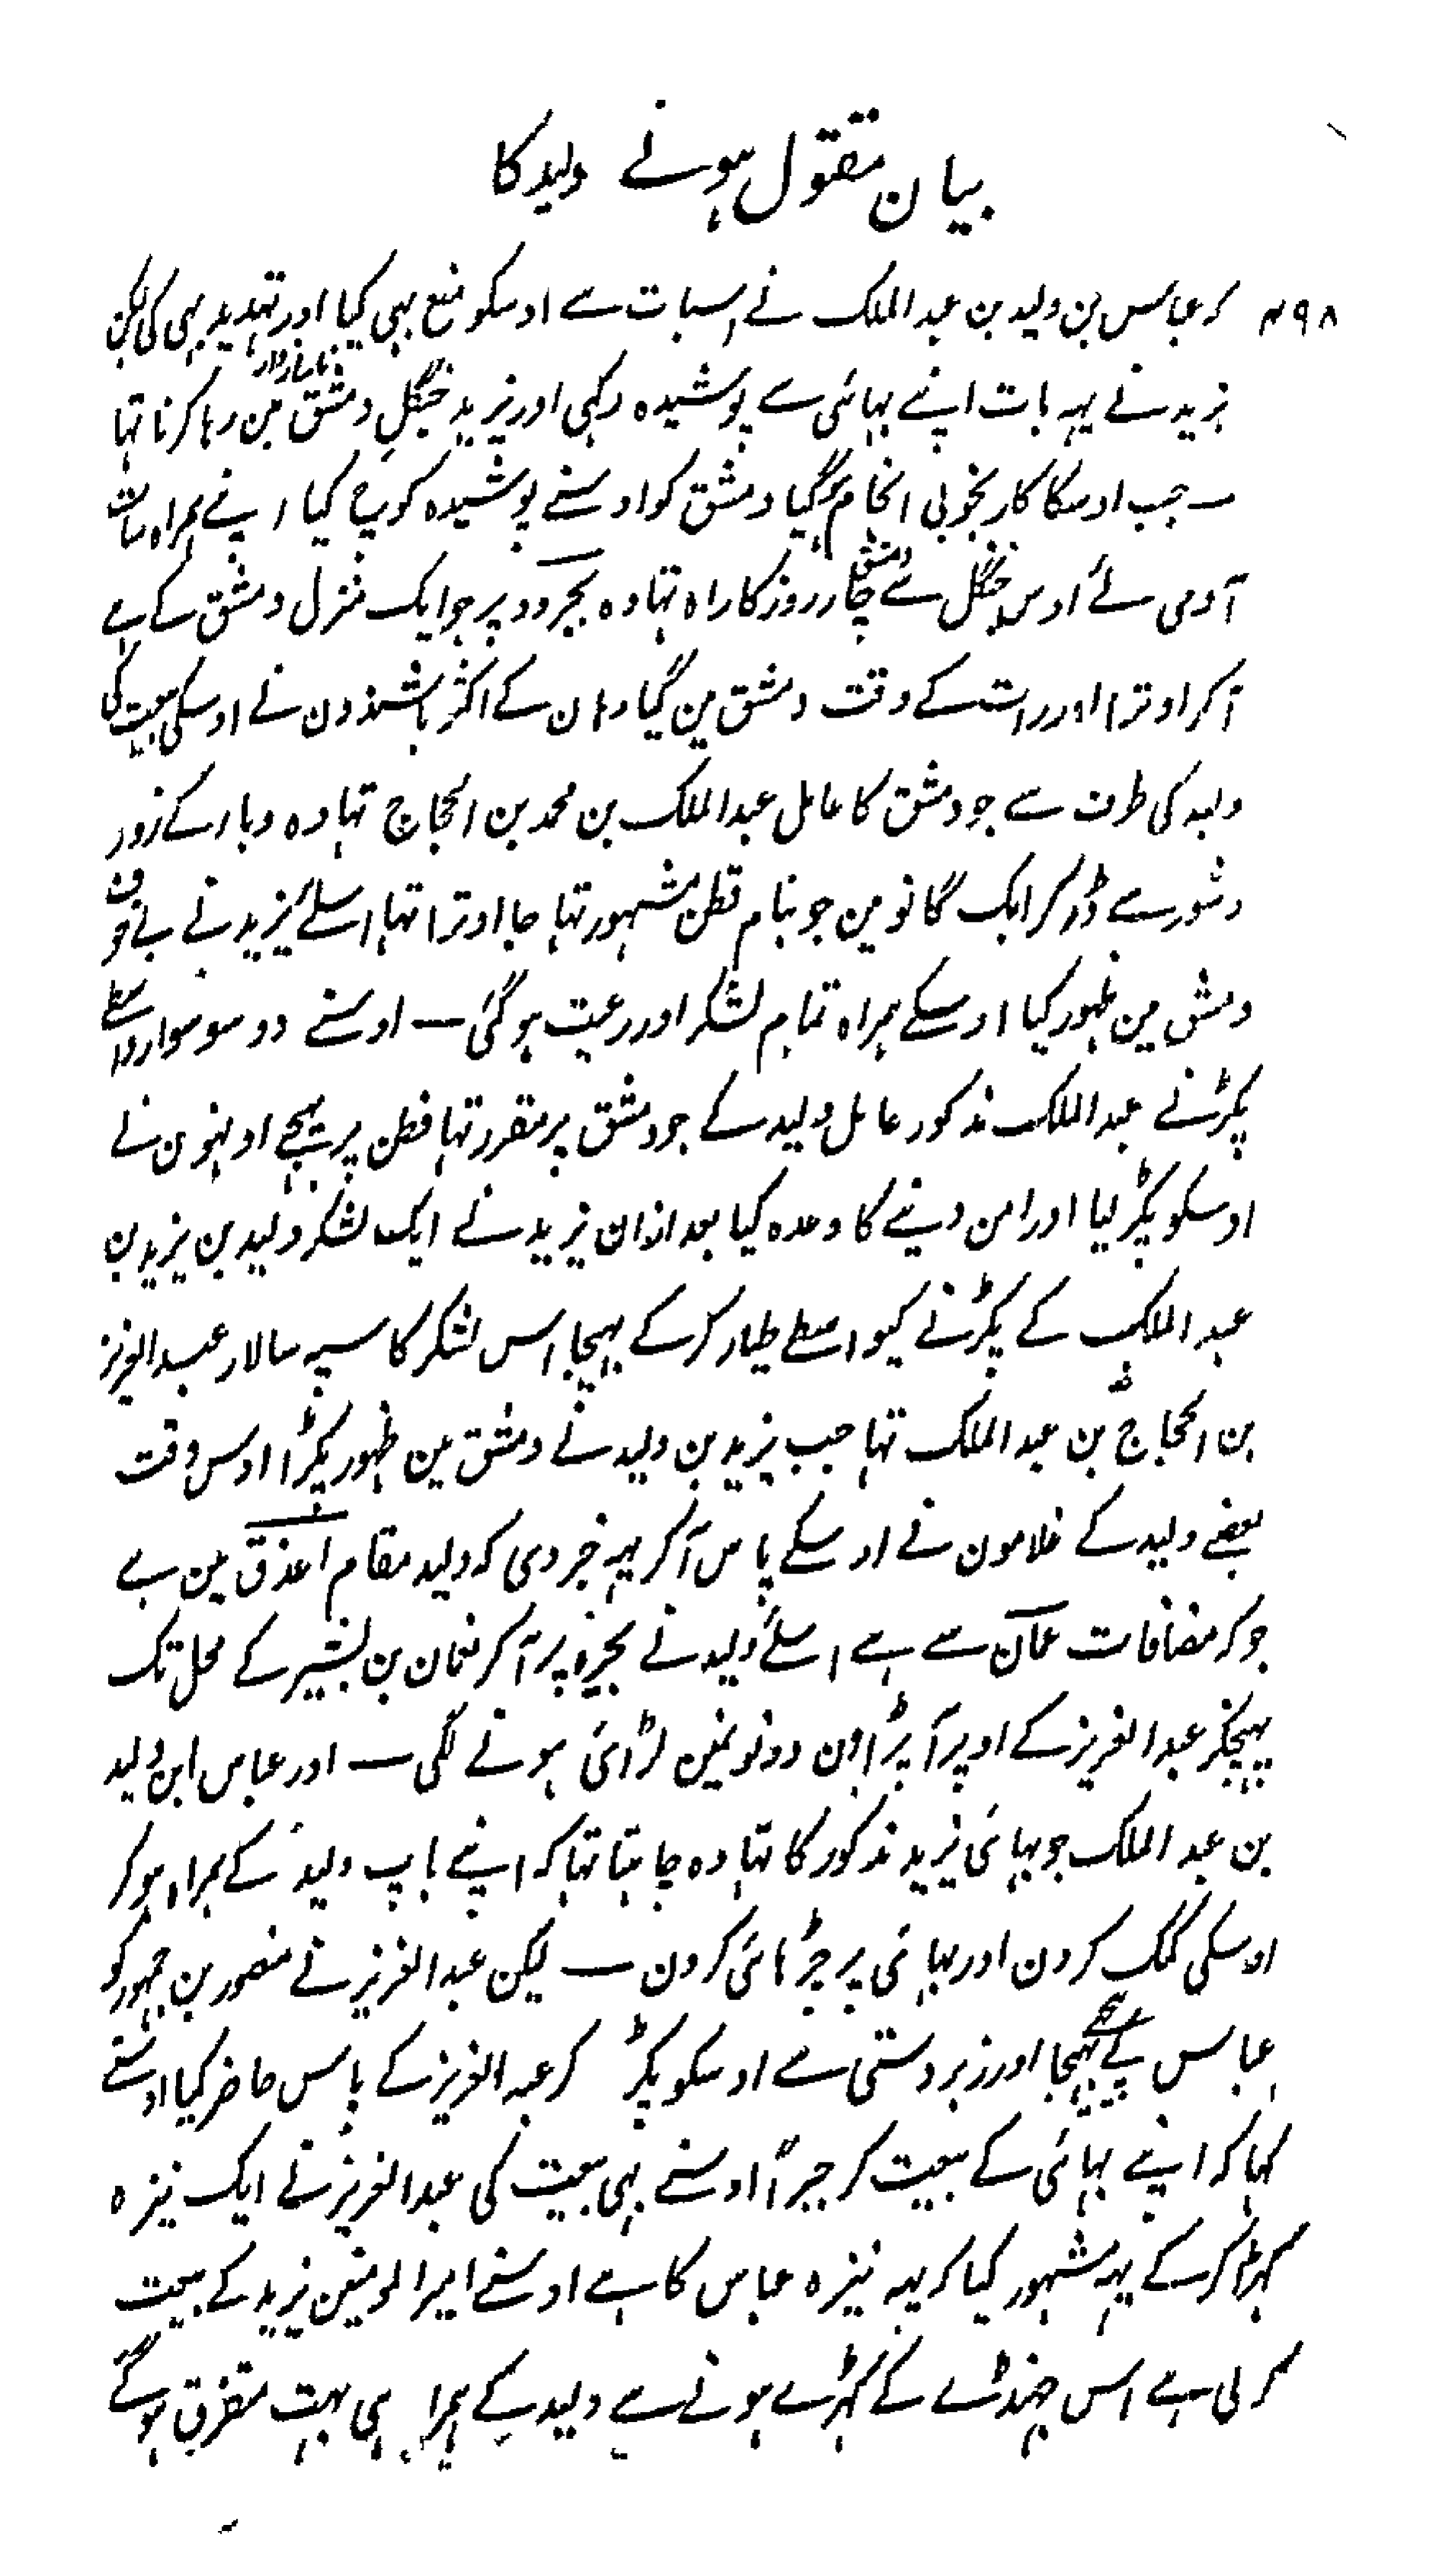 بیان مقتول ہونے ولید کا
۴۹۸
کر عباس بن ولید بن عبد الملک نے اسبات سے اوسکو منع بہی کیا اور تہدید بہی کی لیکن
یزید نے یہہ بات اپنے بہائی سے پوشیدہ رکہی اور یزید جنگلِ دمشق مین رہا کرتا تہا
ــ جب اوسکا کار بخوبی انجام ہوگیا دمشق کو اوسنے پوشیدہ کوچ کیا اپنے ہمراہ سات
آدمی لئے اوس جنگل سے دمشق چار روز کا راہ تہا وہ بجرود پر جو ایک منزل دمشق کے ہے
آکر اوترا اور رات کے وقت دمشق مین گیا وہان کے اکثر باشندون نے اوسکی بیعت کی
ولید کی طرف سے جو دمشق کا عامل عبد الملک بن محمد بن الحجاج تہا وہ وبا کے زور
وشور سے ڈر کر ایک گانو مین جو بنام قطن مشہور تہا جا اوترا تہا اسلئے یزید نے بے خوف
دمشق مین ظہور کیا اوسکے ہمراہ تمام لشکر اور رعیت ہوگئی ــ اوسنے دو سو سوار واسطے
پکڑنے عبد الملک مذکور عامل ولید کے جو دمشق پر مقرر تہا قطن پر بہیجے اونہون نے
اوسکو پکڑ لیا اور امن دینے کا وعدہ کیا بعد ازان یزید نے ایک لشکر ولید بن یزید بن
عبد الملک کے پکڑنے کیواسطے طیار کر کے بہیجا اس لشکر کا سپہ سالار عبد العزیز
بن الحجاج بن عبد الملک تہا جب یزید بن ولید نے دمشق مین ظہور پکڑا اوس وقت
بعضے ولید کے غلامون نے اوسکے پاس آکر یہہ خبر دی کہ ولید مقام اغذق مین ہے
جو کہ مضافات عمان سے ہے اسلئے ولید نے بجرہ پر آکر نعمان بن بشیر کے محل تک
پہنچکر عبد العزیز کے اوپر آ پڑا ان دونو نمین لڑائی ہونے لگی ــ اور عباس ابن ولید
بن عبد الملک جو بہائی یزید مذکور کا تہا وہ چاہتا تہا کہ اپنے باپ ولید کے ہمراہ ہو کر
اوسکی کمک کرون اور بہائی پر چڑہائی کرون ــ لیکن عبد العزیز نے منصور بن جمہور کو
عباس کے پیچھے بہیجا اور زبردستی سے اوسکو پکڑ کر عبد العزیز کے پاس حاضر کیا اوسنے
کہا کہ اپنے بہائی کے بیعت کر جبراً اوسنے بہی بیعت کی عبد العزیز نے ایک نیزہ
کہڑا کر کے یہہ مشہور کیا کہ یہہ نیزہ عباس کا ہے اوسنے امیر المومنین یزید کے بیعت
کر لی ہے اس جہنڈے کے کہڑے ہونے سے ولید کے ہمراہی بہت متفرق ہوگے